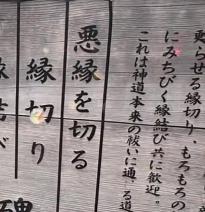 更らせる縁切り、もろもろの
にみちびく縁結び共に歓迎。
これは神道本来の祓いに通る道
悪縁を切る
縁切り
縁結び
碑